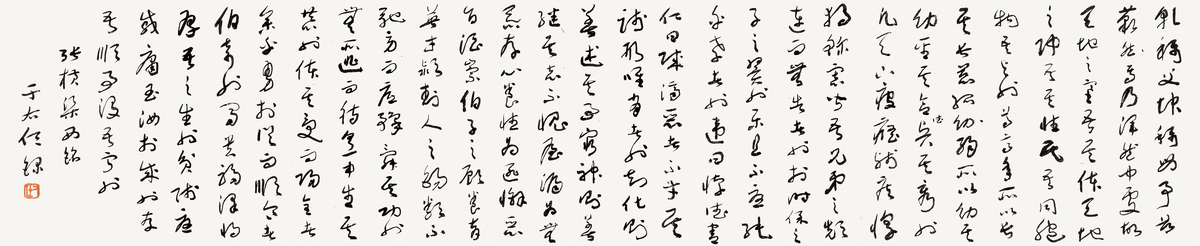 乾稱父坤稱母予茲
藐焉乃渾然中處故
天地之塞吾其體天地
之帥吾其性民吾同胞
物吾與也尊高年所以長
其長慈孤幼所以幼其
幼聖其合德賢其秀也
凡天下疲癃殘疾惸
獨鰥寡皆吾兄弟之顛
連而無告者也於時保之
子之翼也樂且不憂純
乎孝者也違曰悖德害
仁曰賊濟惡者不才其
踐形唯肖者也知化則
善述其事窮神則善
繼其志不愧屋漏為無
忝存心養性為匪懈惡
旨酒崇伯子之顧養育
英才潁封人之錫類不
弛勞而底豫舜其功也
無所逃而待烹申生其
恭也體其受而歸全者
參乎勇於從而順令者
伯奇也富貴福澤將
厚吾之生也貧賤憂
戚庸玉汝於成也存
吾順事沒吾寧也
張橫渠西銘
于右任錄